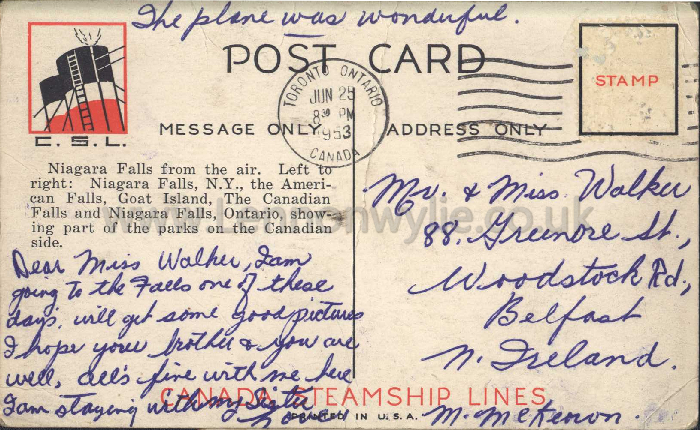 The plane was wonderful.
POST CARD
C. S. L.
TORONTO ONTARIO
JUN 25
8 PM
1953
CANADA
STAMP
MESSAGE ONLY
ADDRESS ONLY
Niagara Falls from the air. Left to
right: Niagara Falls, N.Y., the Ameri-
can Falls, Goat Island, The Canadian
Falls and Niagara Falls, Ontario, show-
ing part of the parks on the Canadian
side.
Dear Miss Walker, I am
going to the Falls one of these
days. will get some good pictures
I hope your brother & you are
well, all's fine with me here
I am staying with my Sister
Mr. & Miss. Walker
88. Greenore St.,
Woodstock Rd.,
Belfast
N. Ireland.
CANADA STEAMSHIP LINES
PRINTED IN U.S.A.
M. McKeown.